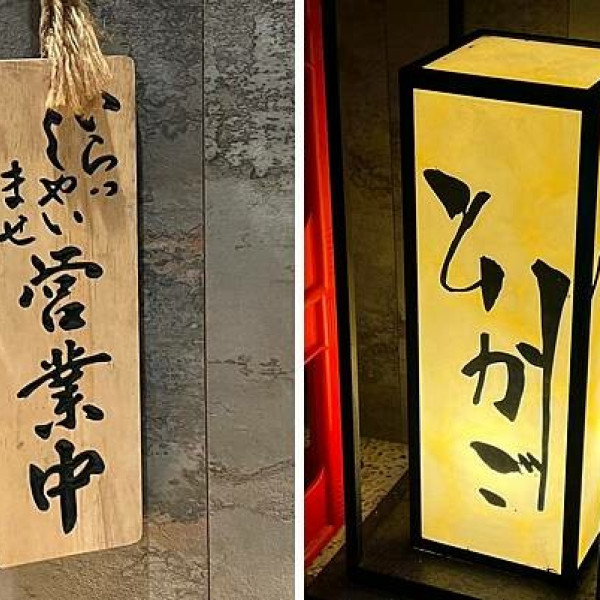 いらっ
しゃい
ませ
営業中
とりかご